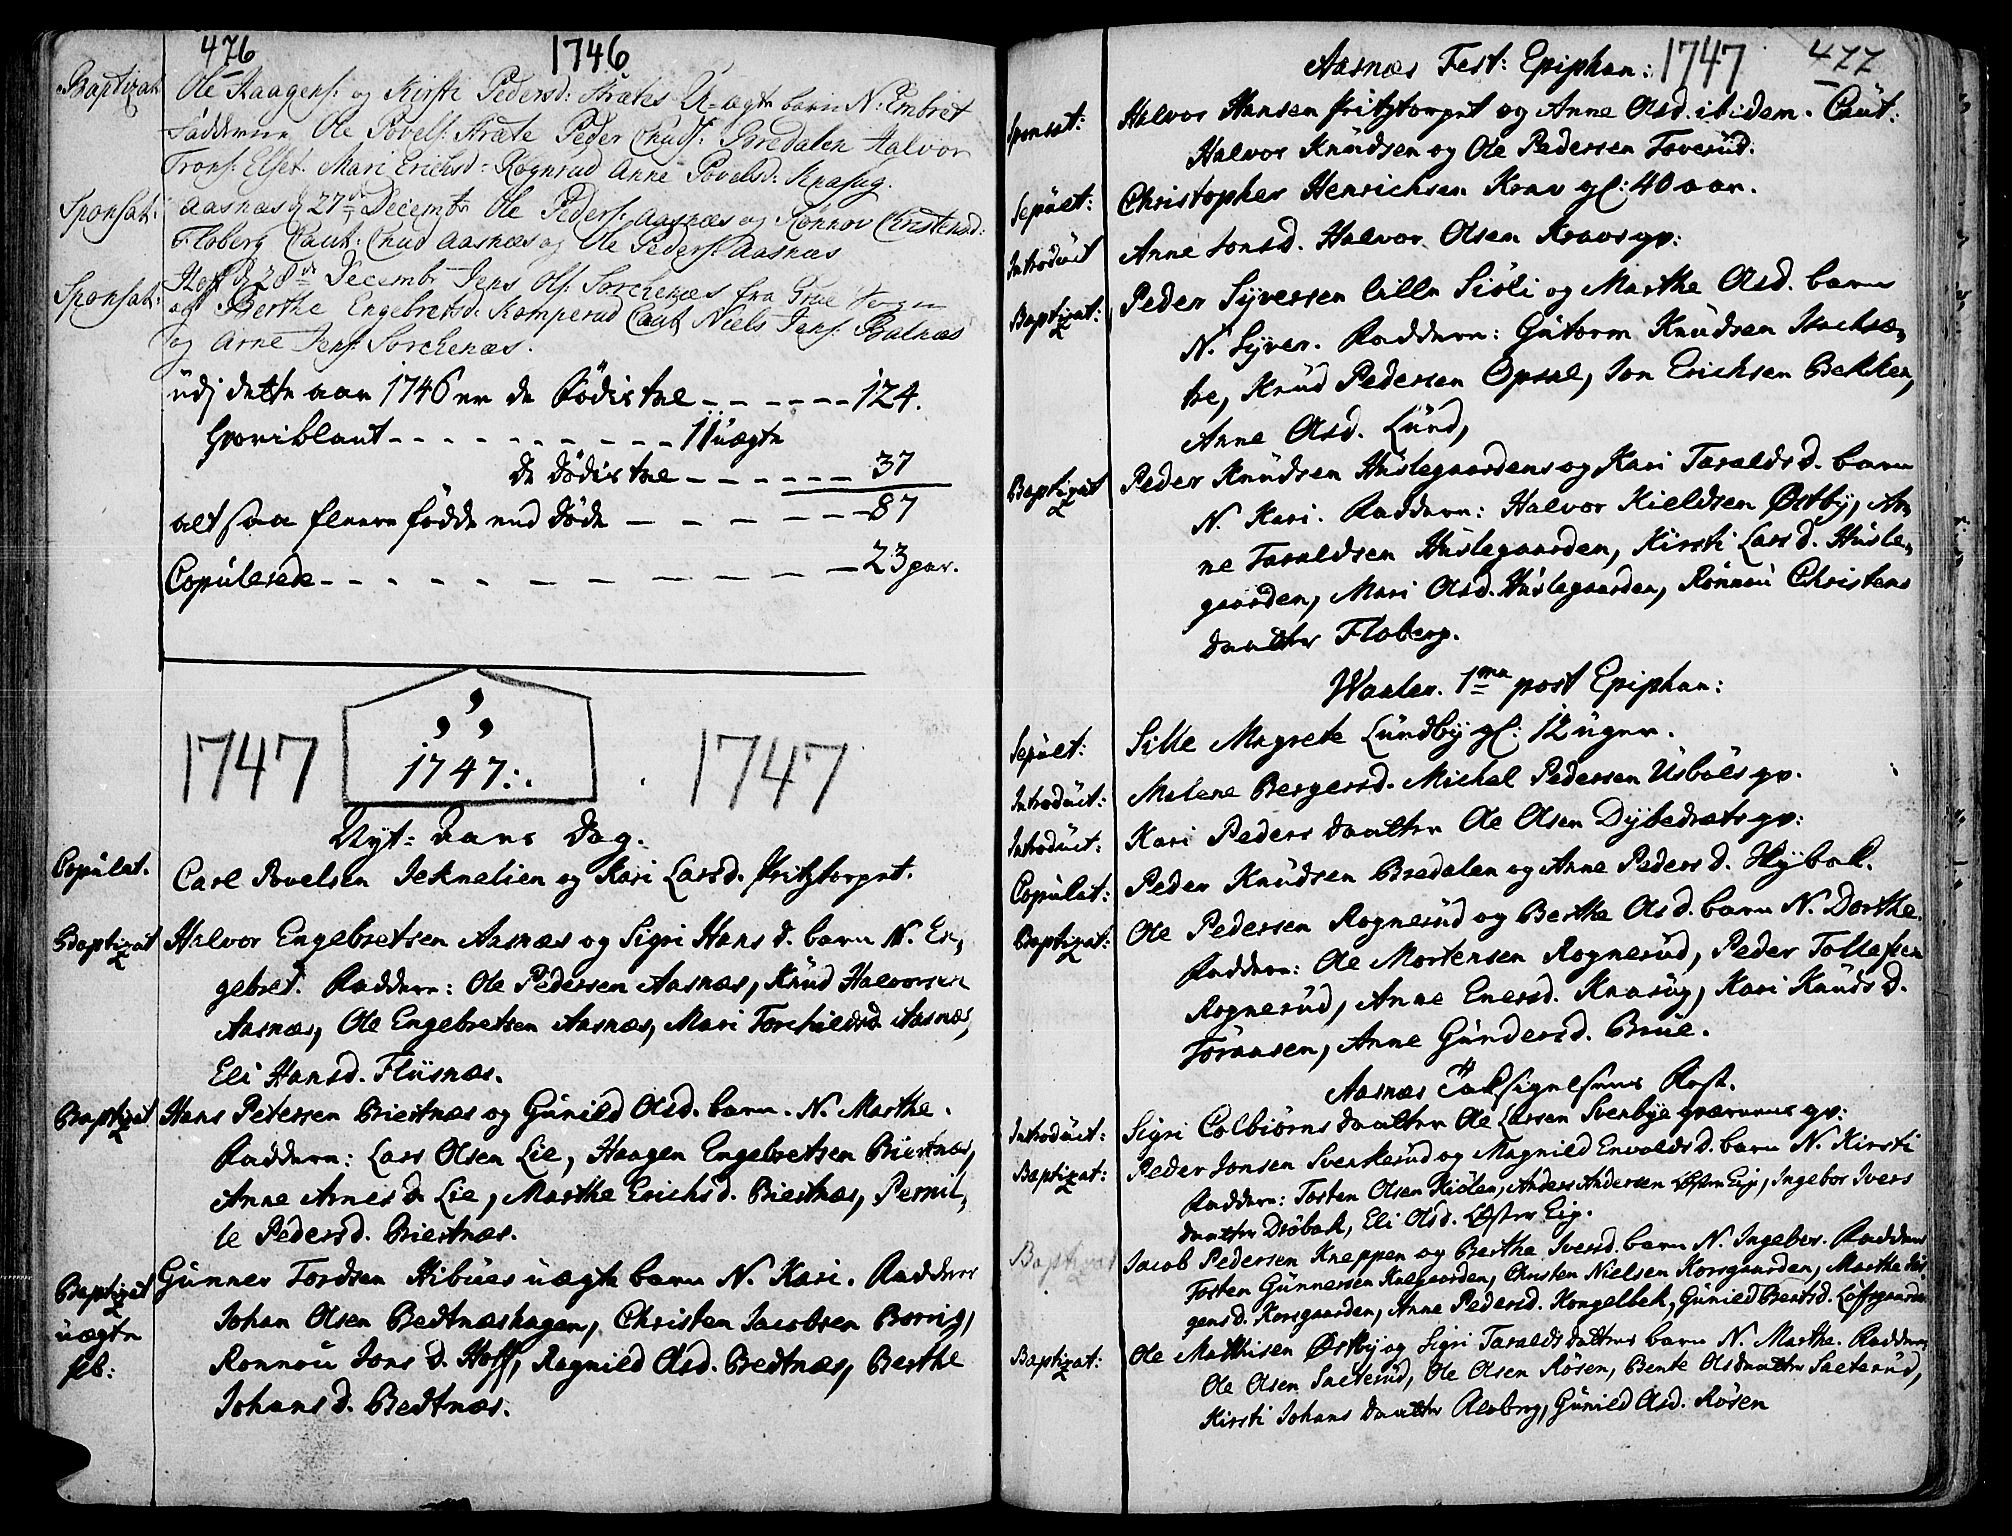 476
1746
Baptizat
Ole Haagens: og Kirsti Pedersd: Stræte U-ægte barn N: Embret
faddere Ole Povels: Stræte Peder Chuds: Bredalen Halvor
Trons: Elset. Mari Erichsd: Rognrud Anne Povelsd: Knasug.
Sponsat: Aasnæs d 27de Decembr Ole Peders: Aasnæs og Rønnov Christensd:
Floberg Caut: Chud Aasnæs og Ole Peders: Aasnæs
Sponsat: Hoff d 28de Decembr Jens Ols: Sorchenæs fra Grue Sogn
og Berthe Engebretsd: Komperud Caut Niels Jens: Balnæs
og Arne Jens: Sorchenæs.
udj dette aar 1746 er de Fødis tal - - - - - - 124.
hvoriblant - - - - - - - - - - 11 uægte
de Dødis tal - - - - - - 37
alt saa fleere fødde end døde - - - - - - 87
Copulerede - - - - - - - - - - 23 par.
1747
1747:.
1747
Nyt: Aars Dag.
Copulat. Carl Povelsen Jeknelien og Kari Larsd. Fritztorpet.
Baptizat Halvor Engebretsen Aasnæs og Sigri Hans d. barn N. En,
gebret. Faddere: Ole Pedersen Aasnæs, Knud Halvorsen
Aasnæs, Ole Engebretsen Aasnæs, Mari Torchildsd. Aasnæs,
Eli Hansd. Fluisnæs.
Baptizat Hans Petersen Biertnæs og Gunild Olsd. barn. N. Marthe.
Faddere: Lars Olsen Lie, Haagen Engebretsen Biertnæs,
Anne Arnesd. Lie, Marthe Erichsd. Biertnæs, Pernil,
le Pedersd. Biertnæs.
Baptizat Gunner Tordsen Hibues uægte barn N. Kari. Faddere
uægte Johan Olsen Bredtnæshagen, Christen Jacobsen Borrig,
fb: Ronnou Jons d. Hoff, Ragnild Olsd. Bredtnæs, Berthe
Johans d. Bredtnæs.
1747 477
Aasnæs Fest: Epiphan:
Sponsat: Halvor Hansen Fritztorpet og Anne Olsd. ibidem. Caut:
Halvor Knudsen og Ole Pedersen Toverud.
Sepult: Christopher Henrichsen Krav gl: 40 aar.
Introduct Anne Jonsd. Halvor Olsen Kravs gv:
Baptizat: Peder Syversen lille Siøli og Marthe Olsd. barn
N. Syver. Faddere: Gutorm Knudsen Isachsæ,
tre, Knud Pedersen Opsal, Jon Erichsen Bekken,
Anne Olsd. Lund,
Baptizat Peder Knudsen Huslegaardens og Kari Taralds d. barn
N. Kari. Faddere: Halvor Kieldsen Østby, Ar,
ne Taraldsen Huslegaarden, Kirsti Lars d. Husle,
gaarden, Mari Olsd. Huslegaarden, Rønnou Christens
daatter Floberg.
Waaler. 1ma post Epiphan:
Sepult: Sille Magrete Lundby gl: 12 uger.
Introduct: Malene Bergersd. Michel Pedersen Usbøls gv.
Introduct: Kari Peders daatter Ole Olsen Dybedræts gv:
Copulat: Peder Knudsen Bredalen og Anne Peders d. Hybak.
Baptizat: Ole Pedersen Rognerud og Berthe Ols d. barn N. Dorthe.
Faddere: Ole Mortensen Rognerud, Peder Tollefsen
Rognerud, Anne Enersd. Knasug, Kari Knuds d.
Toraasen, Anne Gundersd. Brue.
Aasnæs Taksigelsens Fest.
Introduct: Sigri Colbiørns daatter Ole Larsen Svenbye gv:
Baptizat: Peder Jonsen Svenkerud og Magnild Envolds d. barn N. Kirsti
Faddere: Tosten Olsen Kiølen, Anders Andersen Østen Eig, Ingebor Ivers
daatter Drøbak, Eli Olsd. Østen Eig.
Baptizat Jacob Pedersen Kneppen og Berthe Iversd. barn N. Ingebor. Faddere
Tosten Gunnersen Knegaarden, Christen Nielsen Korsgaarden, Marthe
gensd. Korsgaarden, Anne Pedersd. Kongelbek, Gunild Berntsd. Løfsgaarden
Baptizat: Ole Mathisen Østby og Sigri Taralds datters barn N. Marthe. Faddere,
Ole Olsen Sæterud, Ole Olsen Røsen, Bente Olsdaatter Sæterud,
Kirsti Johans daatter Floberg, Gunild Olsd. Røsen